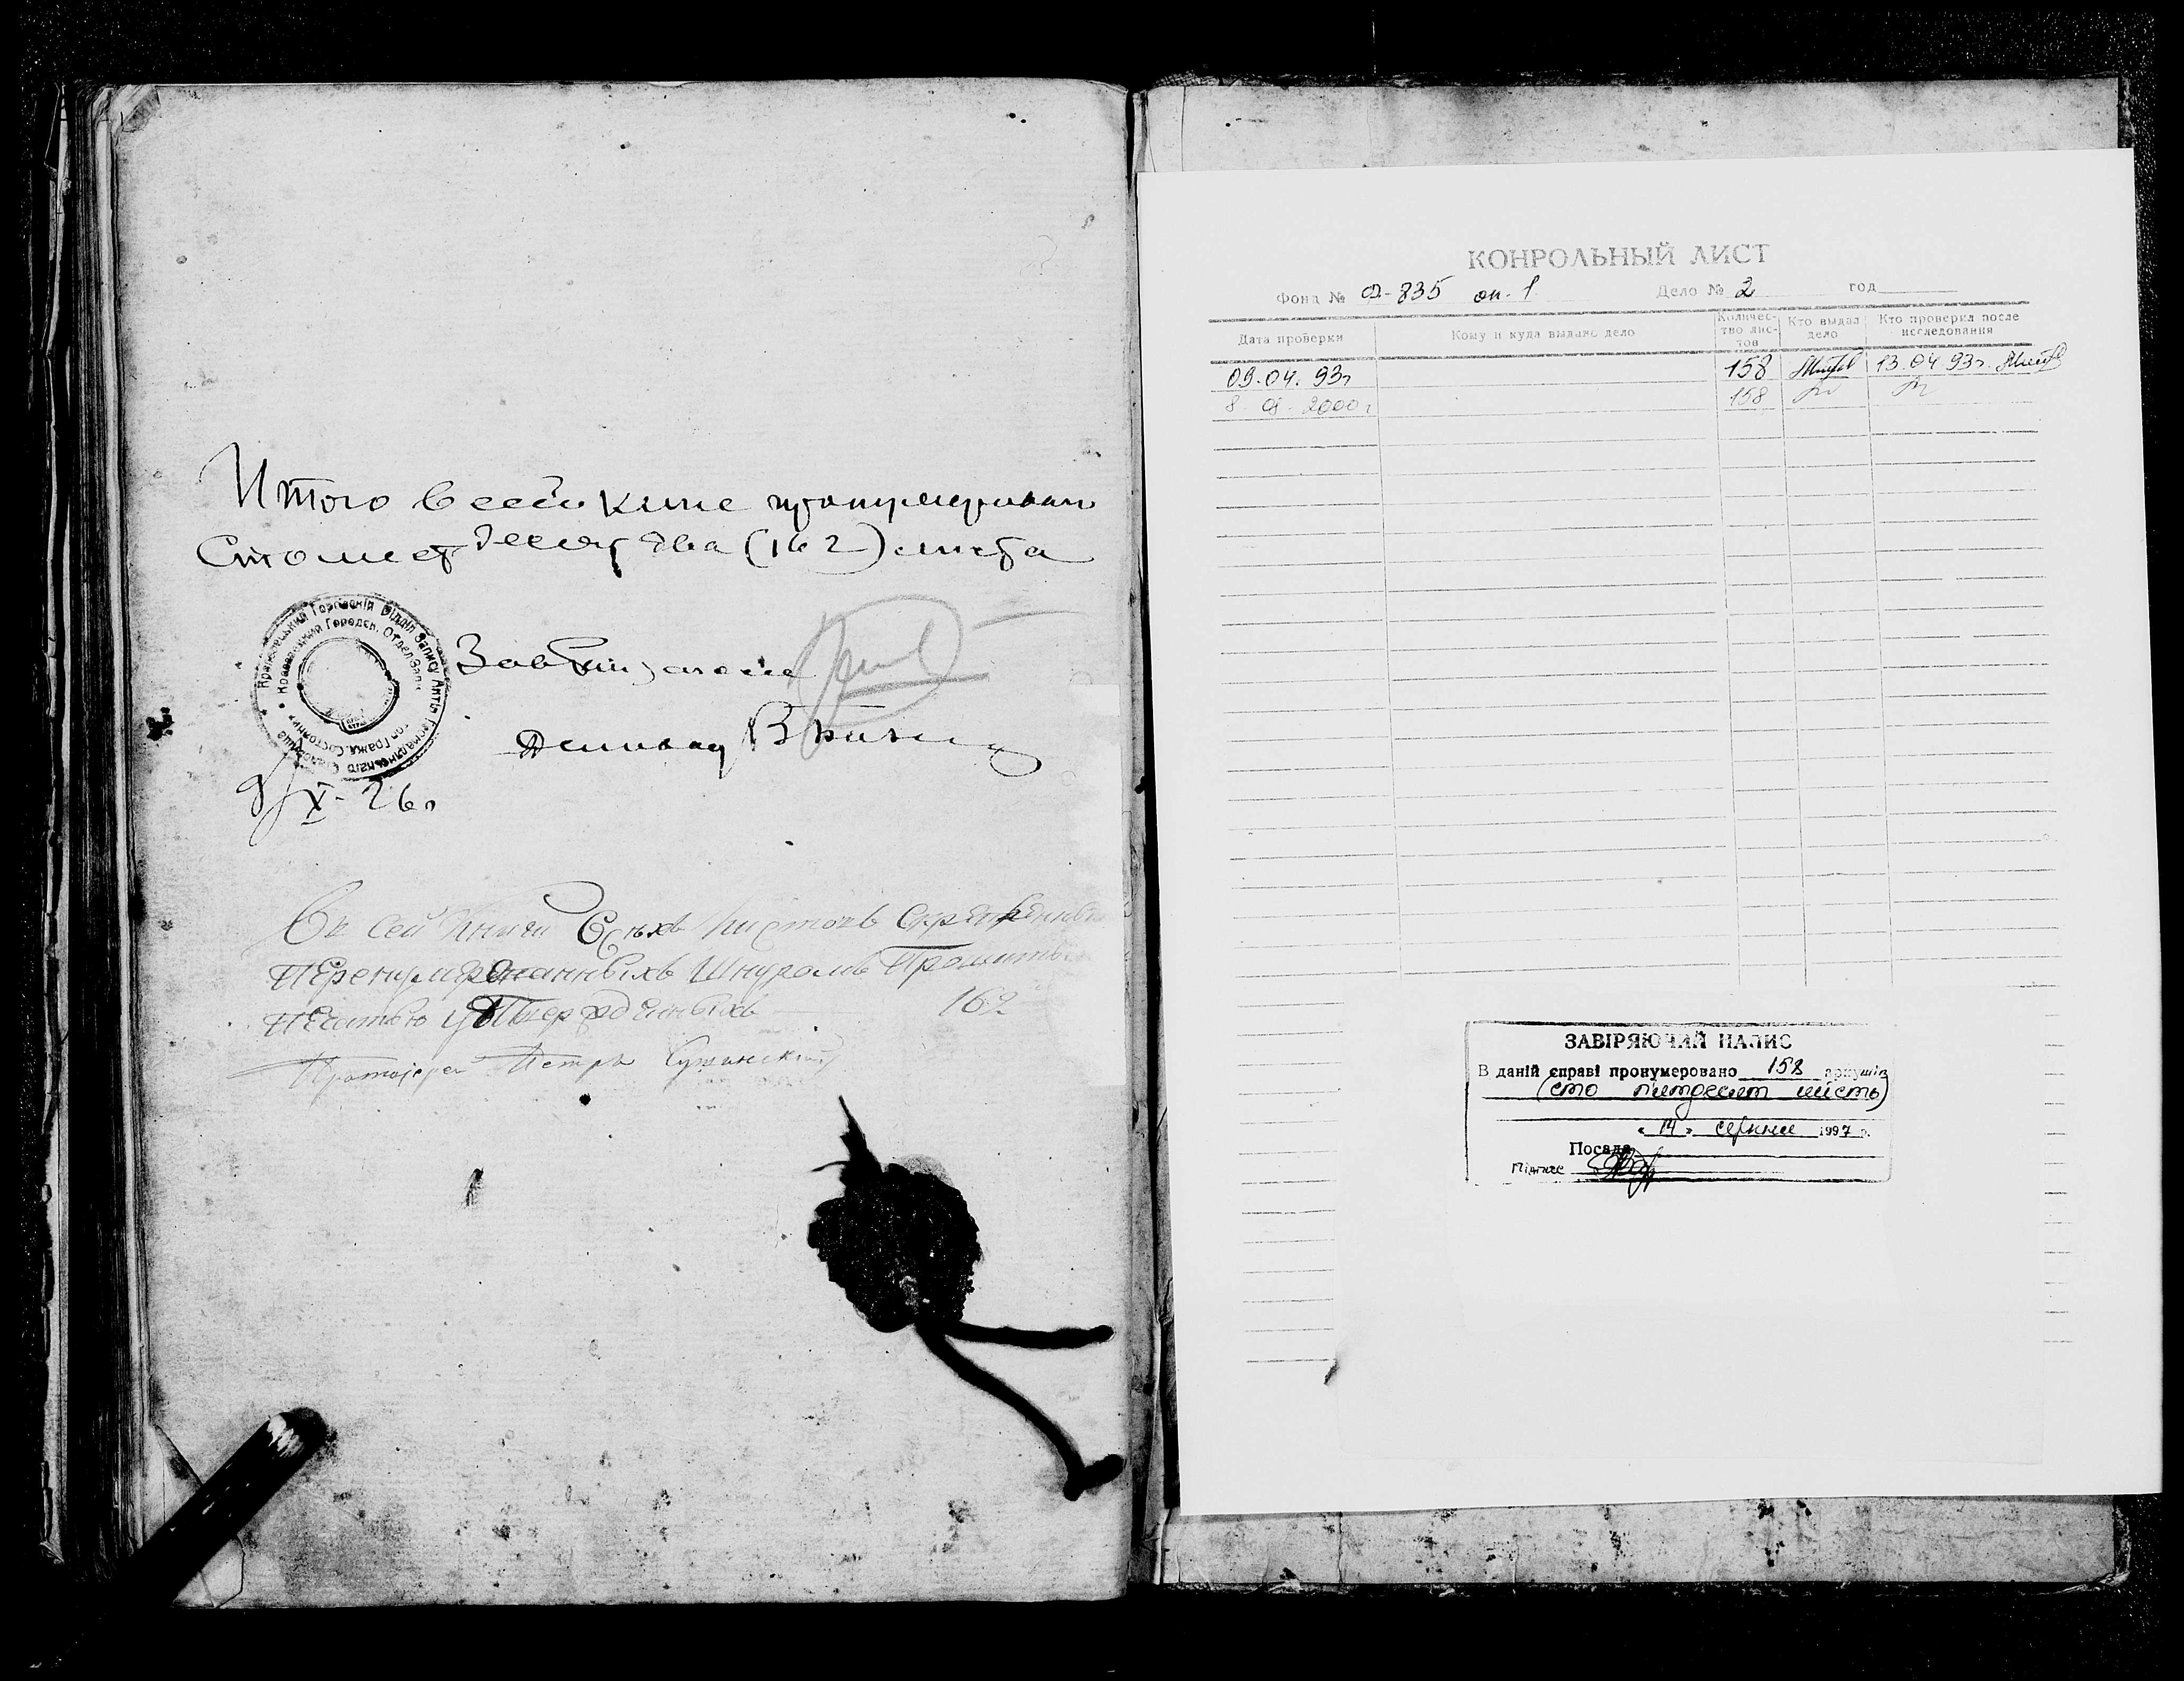 Итого в сей книге пронумерован
Сто шестьдесят два (162) листа
Завъ
Деловод
9/X-26г
Въ сей книги Всѣхъ листовъ Скрепленныхъ
Перенумерованныхъ Шнуромъ Прошитыхъ
Печатью утвержденныхъ — 162
Протоіерей Петръ
КОНРОЛЬНЫЙ ЛИСТ
Фонд № Ф-835 оп. 1 Дело № 2 год
Дата проверки Кому и куда выдано дело Количес-тво лис-тов Кто выдал дело Кто проверил после исследования
09.04.93г 158 13.04.93г.
8. 2000г 158
ЗАВІРЯЮЧИЙ НАПИС
В даній справі пронумеровано 158 аркушів
(сто пятдесят шість)
« 14 » серпня 1997 р.
Посада
Підпис